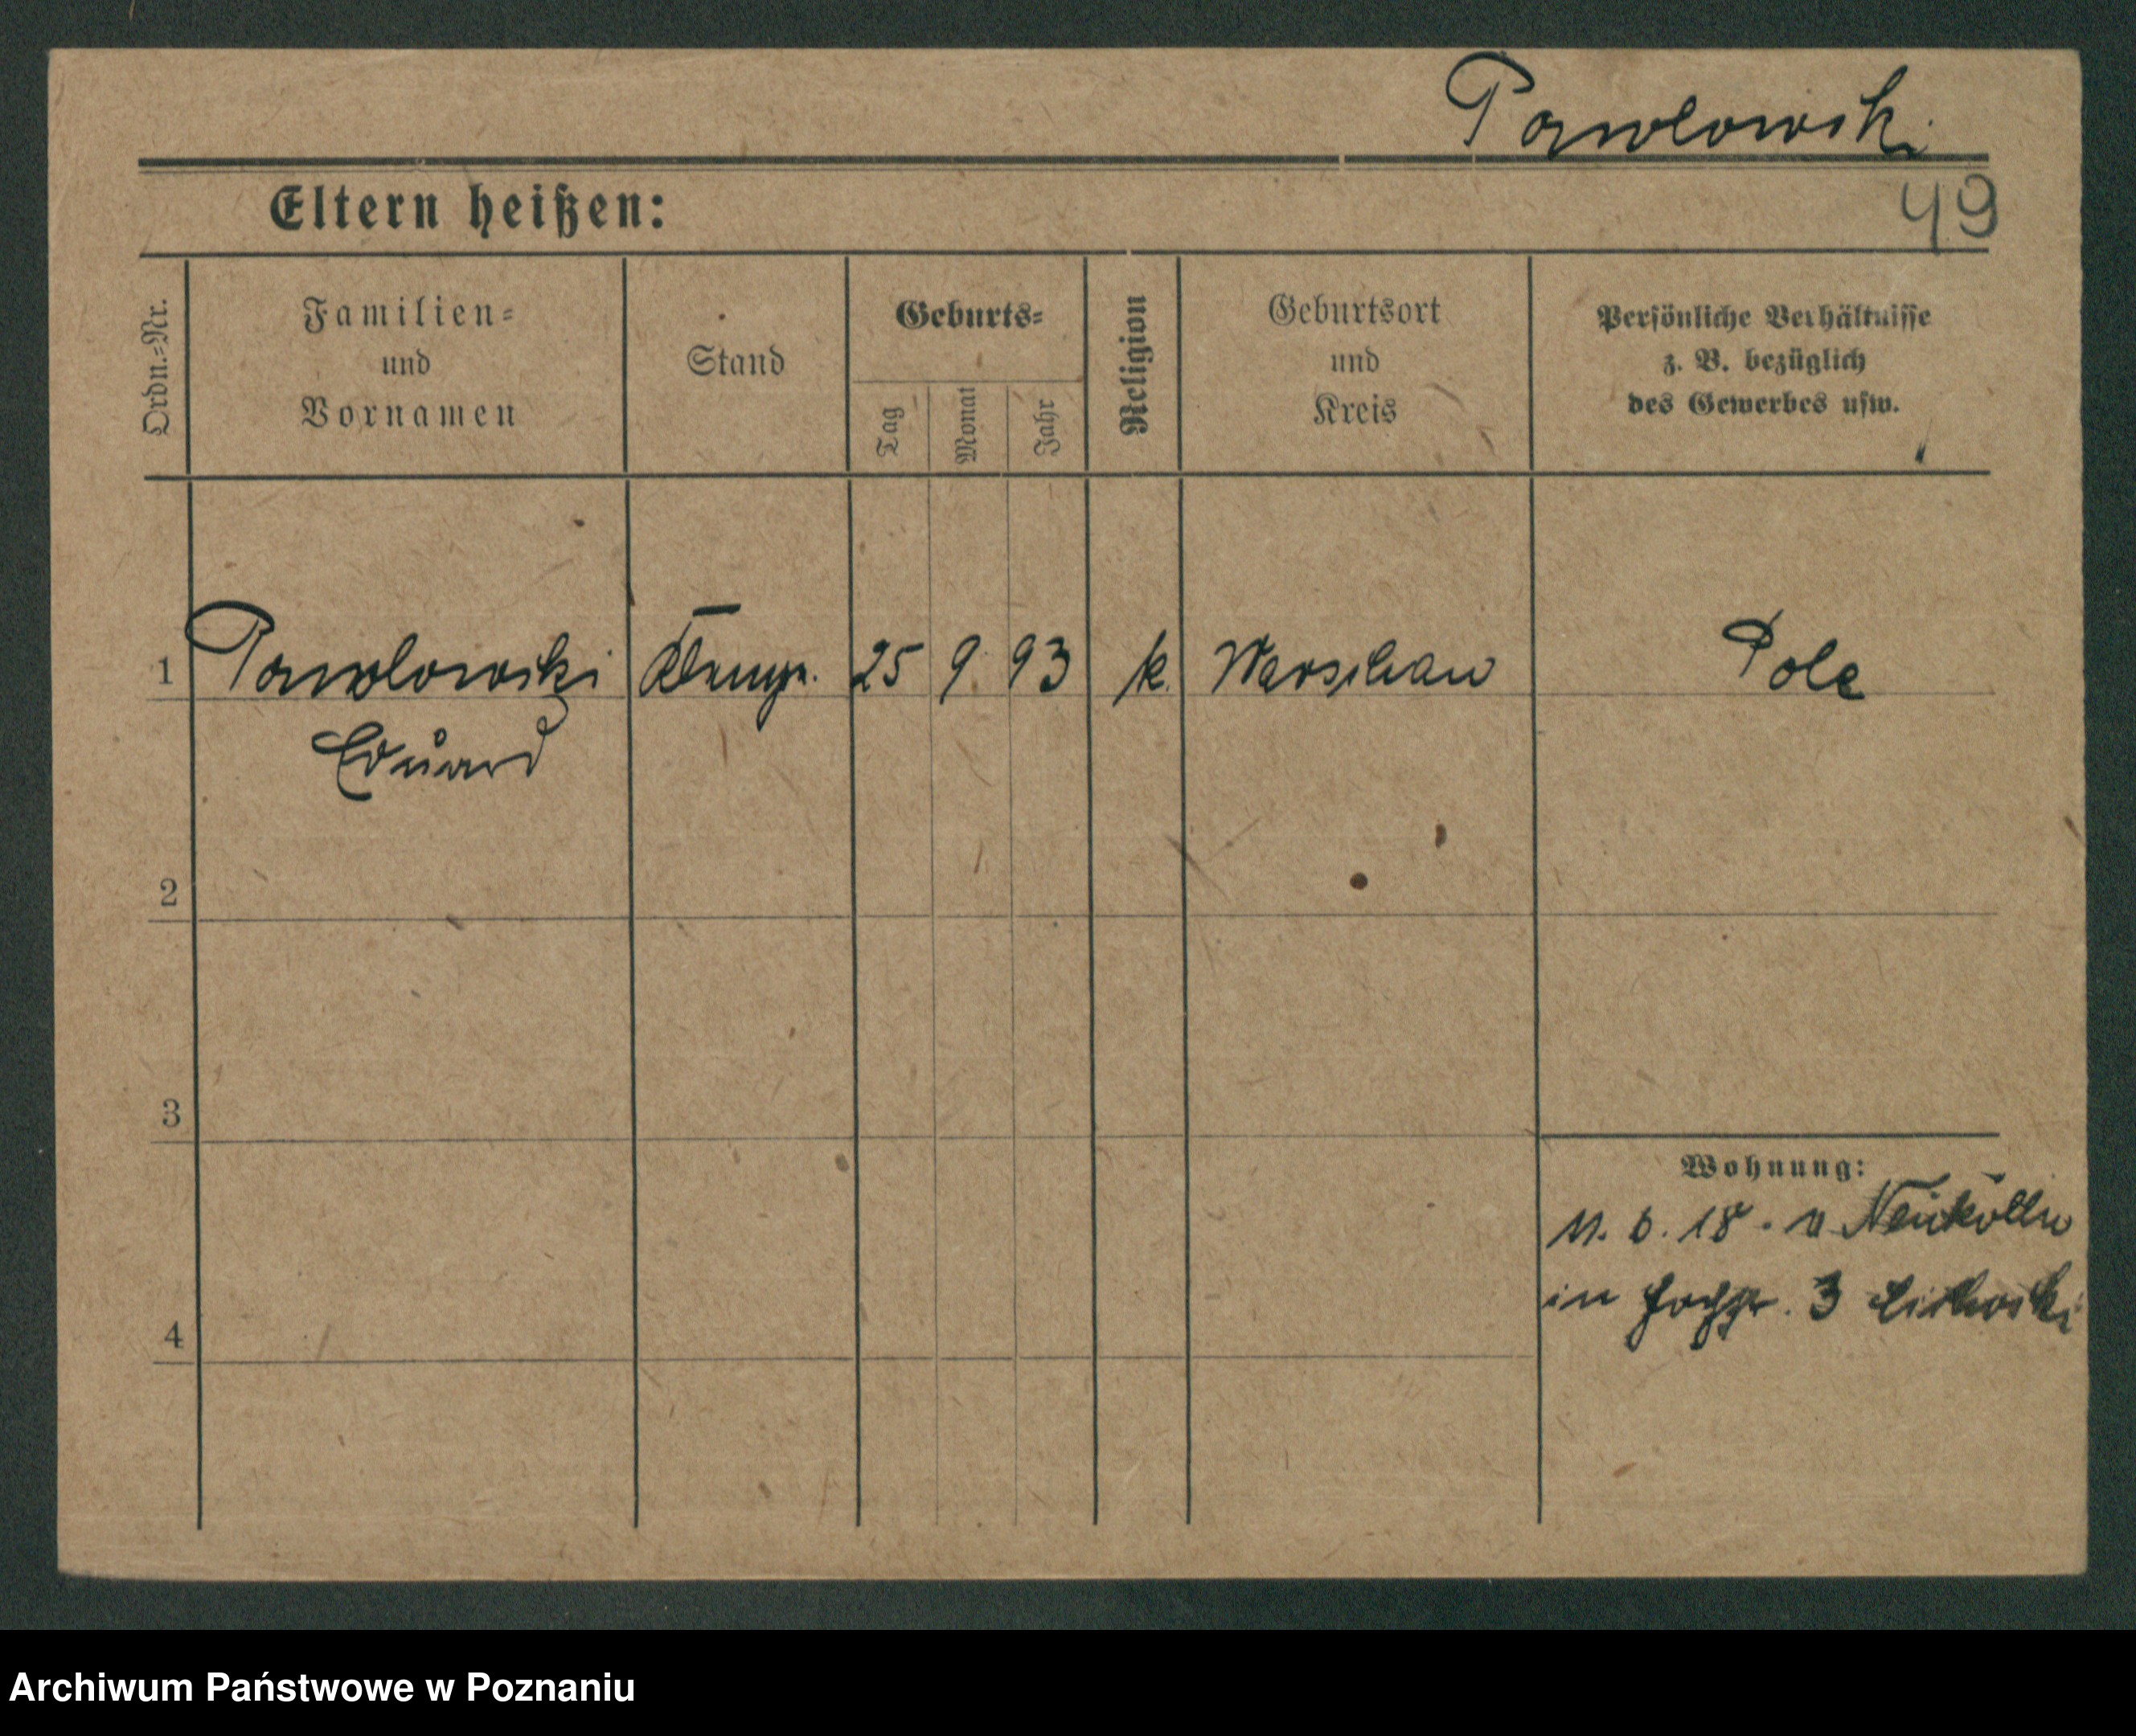 Pawlowski
Eltern heißen:
49
Ordn.=Nr.
Familien=
und
Vornamen
Stand
Geburts=
Tag
Monat
Jahr
Religion
Geburtsort
und
Kreis
Persönliche Verhältnisse
z. B. bezüglich
des Gewerbes usw.
1 Pawlowski Klempn. 25 9 93 k. Warschau Pole
Eduard
2
3
Wohnung:
11. 6. 18. v Neukölln
in 3
4
Archiwum Państwowe w Poznaniu